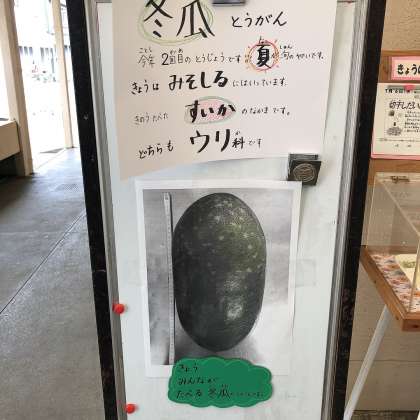 冬瓜 とうがん
ことし かいめ しゅん
今年 2回目のとうじょうです 夏が旬のやさいです。
きょうは みそしる にはいっています。
きのうたべた すいか のなかまです。
どちらも ウリ科です
きょう
みんなが
たべる 冬瓜
きょうの